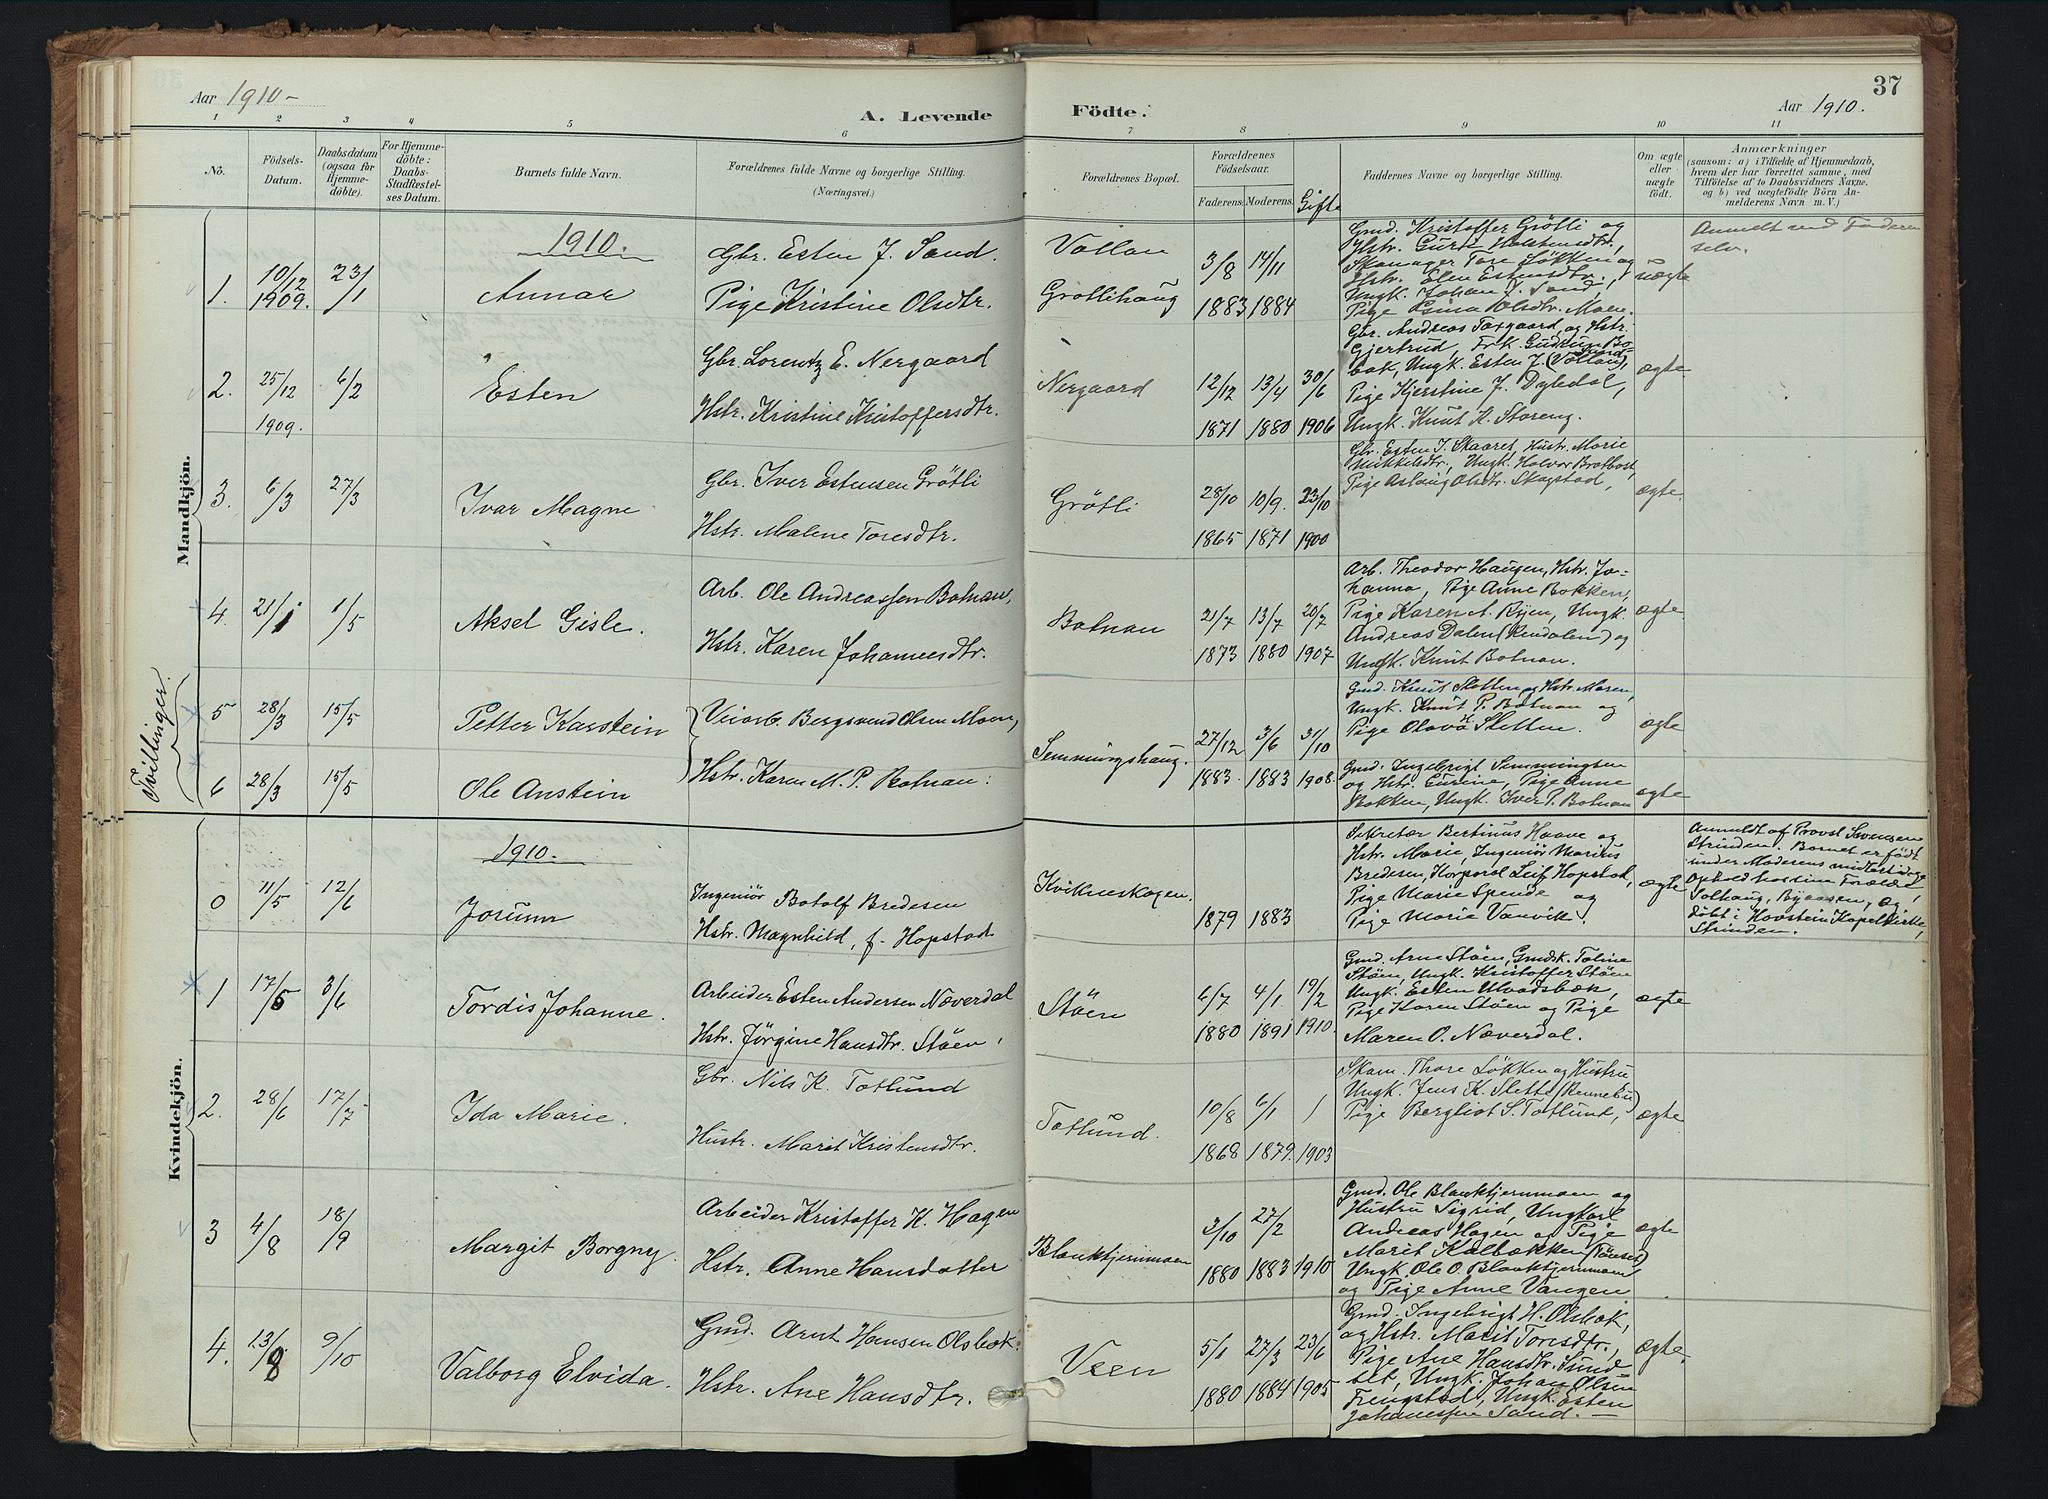 37
Aar 1910-
A. Levende
Födte.
Aar 1910.
1 2 3 4 5 6 7 8 9 10 11
No.
Födsels-
Datum.
Daabsdatum
(ogsaa for
Hjemme-
döbte).
For Hjemme-
döbte:
Daabs-
Stadfæstel-
ses Datum.
Barnets fulde Navn.
Forældrenes fulde Navne og borgerlige Stilling.
(Næringsvei.)
Forældrenes Bopæl.
Forældrenes
Födselsaar.
Faderens. Moderens. Gifte
Faddernes Navne og borgerlige Stilling.
Om ægte
eller
uægte
födt.
Anmærkninger
(saasom: a) i Tilfælde af Hjemmedaab,
hvem der har forrettet samme, med
Tilföielse af to Daabsvidners Navne,
og b) ved uægtefödte Börn An-
melderens Navn m. V.)
Mandkjön.
1910.
1. 10/12 1909. 23/1
Annar
Gbr. Esten J. Sand.
Pige Kristine Olsdtr.
Vollan
Gröttihaug
3/8 14/11
1883 1884
Gmd. Kristoffer Grötli og
Hstr. Guru Halstensdtr.,
Skomager Tore Løkken og
Hstr. Elen Estensdtr.,
Ungk. Johan J. Sand,
Pige Olsdtr. Moen.
uægte
Anmeldt ved Faderen
selv.
2. 25/12 1909. 6/2
Esten
Gbr. Lorentz E. Nergaard
Hstr. Kristine Kristoffersdtr.
Nergaard
12/12 13/4 30/6
1871 1880 1906
Gbr. Andreas Torgaard, og Hstr.
Gjertrud, Frk. Gudrun Bo-
bak, Ungk. Esten J. Sand (Vollan),
Pige Kjerstine J. Dyledal,
Ungk. Knut K. Storeng.
ægte
3. 6/3 27/3
Ivar Magne
Gbr. Iver Estensen Grötli
Hstr. Malene Toresdtr.
Grötli
28/10 10/9. 23/10
1865 1871 1900
Gbr. Esten J. Skaaret, Hustr. Marie
Mikkelsdtr., Ungk. Halvor Bratbost,
Pige Aslaug Olsdtr. Skogstad,
ægte.
4. 21/1 1/5
Aksel Gisle.
Arb. Ole Andreassen Botnan,
Hstr. Karen Johannesdtr.
Botnan
21/7 13/7 20/7
1873 1880 1907
Arb. Theodor Haugen, Hstr. Jo-
hanna, Pige Anne Bakken,
Pige Karen A. Ryen, Ungk.
Andreas Dalen (Rendalen) og
Ungk. Knut Botnan.
ægte
Tvillinger.
5 28/3 15/5
Petter Karstein
Veiarb. Bergsvend Olsen Moen,
Hstr. Karen M. P. Botnan.
Semmingshaug.
27/12 3/6 31/10
1883. 1883 1908.
Gmd. Knut Sletten og Hstr. Maren,
Ungk. Knut P. Botnan og
Pige Olava H. Sletten.
ægte
6 28/3 15/5
Ole Anstein
Gmd. Ingebrigt Semmingsen
og Hstr. Eurine, Pige Anne
Bakken, Ungk. Iver P. Botnan
ægte
Kvindekjön.
1910.
0 11/5 12/6
Jorunn
Ingeniør Botolf Bredesen
Hstr. Magnhild, f. Hopstad
Kvikneskogen.
1879 1883
Sekretær Bertinus Haave og
Hstr. Marie, Ingeniør Marius
Bredesen, Korporal Leif Hopstad,
Pige Marie Spende og
Pige Marie Vanvik.
ægte
Anmeldt af Provst Svensen
Strinden. Barnet er født
under Moderens midlertidige
Ophold hos sine Forældre
Solhaug, Byaasen, og
døbt i Havstein Kapelkirke,
Strinden.
1 17/5 3/6
Tordis Johanne.
Arbeider Esten Andersen Næverdal
Hstr. Jörgine Hansdtr. Støen,
Støen
6/7 4/1 19/2
1880 1891 1910.
Gmd. Arne Støen, Gmdsk. Toline
Støen, Ungk. Kristoffer Støen
Ungk. Esten Ulvadsbæk,
Pige Karen Støen og Pige
Maren O. Næverdal.
ægte
2. 28/6 17/7
Ida Marie.
Gbr. Nils K. Totlund
Hustr. Marit Kristensdtr.
Totlund.
10/8 6/1 /
1868 1879. 1903
Skom. Thore Løkken og Hustru
Ungk. Jens K. Slette (Rennebu)
Pige Bergliot S. Totlund,
ægte
3 4/8 18/9
Margit Borgny.
Arbeider Kristoffer K. Hagen
Hstr. Anne Hansdatter
Blanktjernmoen
2/10 27/2
1880 1883 1910
Gmd. Ole Blanktjernmoen og
Hustru Sigrid, Ungkarl
Andreas Hagen og Pige
Marit Kalbækken (Tønset)
Ungk. Ole O. Blanktjernmoen
og Pige Anne Vangen
ægte
4. 13/8 9/10
Valborg Elvida.
Gmd. Arnt Hansen Olsbak.
Hstr. Ane Hansdtr.
Veen
5/1 27/3 23/6
1880 1884 1905
Gmd. Ingebrigt H. Olsbak,
og Hstr. Marit Toresdtr.,
Pige Ane Hansdtr. Sunde
bet, Ungk. Johan Olsen
Frengstad, Ungk. Esten
Johanessen Sand.
ægte.